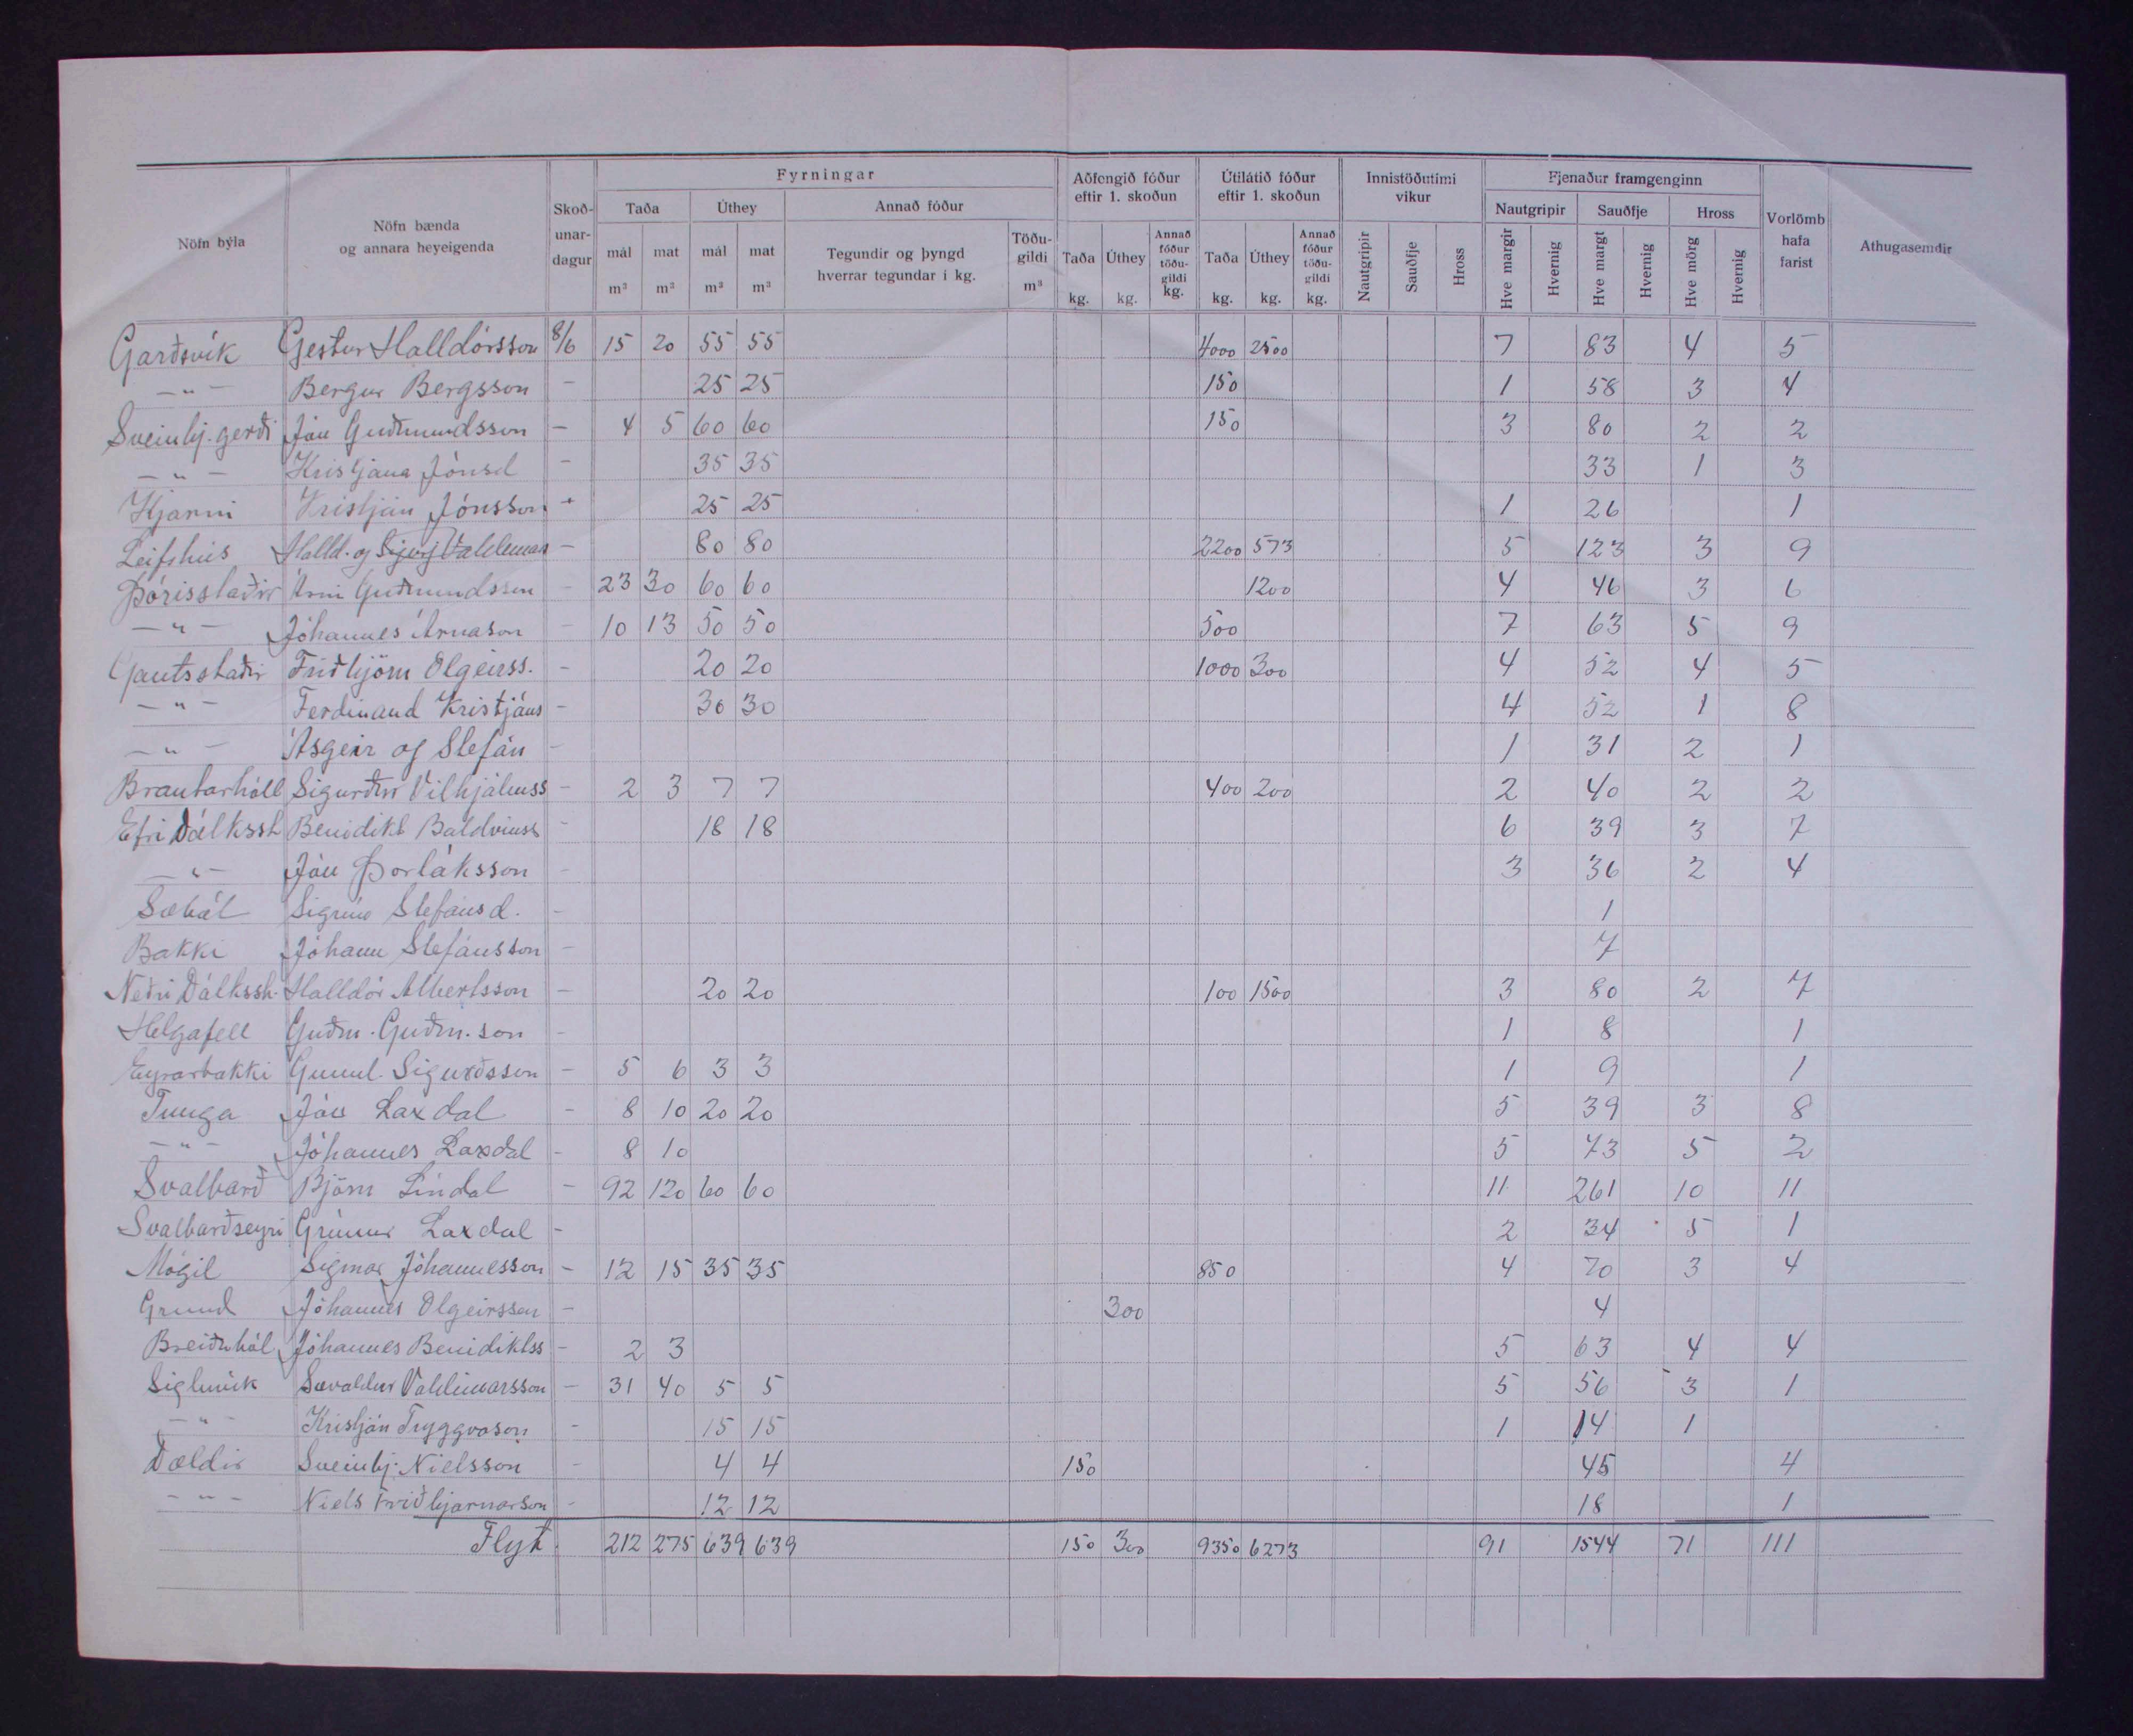 Fyrningar
Aðfengið fóður eftir 1. skoðun
Útilátið fóður eftir 1. skoðun
Innistöðutími vikur
Fjenaður framgenginn
Nöfn býla
Nöfn bænda og annara heyeigenda
Skoð-unar-dagur
Taða Úthey Annað fóður
Nautgripir Sauðfje Hross
Vorlömb hafa farist
Athugasemdir
mál m³ mat m³ mál m³ mat m³ Tegundir og þyngd hverrar tegundar í kg. Töðu-gildi m³ Taða kg. Úthey kg. Annað fóður töðu-gildi kg. Taða kg. Úthey kg. Annað fóður töðu-gildi kg. Nautgripir Sauðfje Hross Hve margir Hvernig Hve margt Hvernig Hve mörg Hvernig
Garðsvík Gestur Halldórsson 8/6 15 20 55 55 4000 2500 7 83 4 5
— " — Bergur Bergsson - 25 25 150 1 58 3 4
Sveinbj.gerði Jón Guðmundsson - 4 5 60 60 150 3 80 2 2
— " — Kristjana Jónsd - 35 35 33 1 3
Kjarni Kristján Jónsson - 25 25 1 26 1
Leifshús Halld. og Sigurj Valdemars - 80 80 2200 573 5 123 3 9
Þórisstaðir Árni Guðmundsson - 23 30 60 60 1200 4 46 3 6
— " — Jóhannes Árnason - 10 13 50 50 500 7 63 5 9
Gautsstaðir Friðbjörn Olgeirss. - 20 20 1000 300 4 52 4 5
— " — Ferdinand Kristjáns - 30 30 4 52 1 8
— " — Ásgeir og Stefán - 1 31 2 1
Brautarhóll Sigurður Vilhjálmss - 2 3 7 7 400 200 2 40 2 2
Efri Dálksst Benidikt Baldvinss - 18 18 6 39 3 7
— " — Jón Þorláksson - 3 36 2 4
Sigrún Stefánsd. - 1
Bakki Jóhann Stefánsson - 7
Neðri Dálksst. Halldór Albertsson - 20 20 100 1500 3 80 2 7
Helgafell Guðm. Guðm.son - 1 8 1
Eyrarbakki Gunnl. Sigurðsson - 5 6 3 3 1 9 1
Tunga Jón Laxdal - 8 10 20 20 5 39 3 8
— " — Jóhannes Laxdal - 8 10 5 73 5 2
Svalbarð Björn Líndal - 92 120 60 60 11 261 10 11
Svalbarðseyri Grímur Laxdal - 2 34 5 1
Mógil Sigmar Jóhannesson - 12 15 35 35 850 4 70 3 4
Grund Jóhannes Olgeirsson - 300 4
Breiðuból Jóhannes Benidiktss - 2 3 5 63 4 4
Sigluvík Sævaldur Valdimarsson - 31 40 5 5 5 56 3 1
— " — Kristján Tryggvason - 15 15 1 14 1
Dældir Sveinbj. Níelsson - 4 4 150 45 4
— " — Níels Friðbjarnarson - 12 12 18 1
Flyt 212 275 639 639 150 300 9350 6273 91 1544 71 111